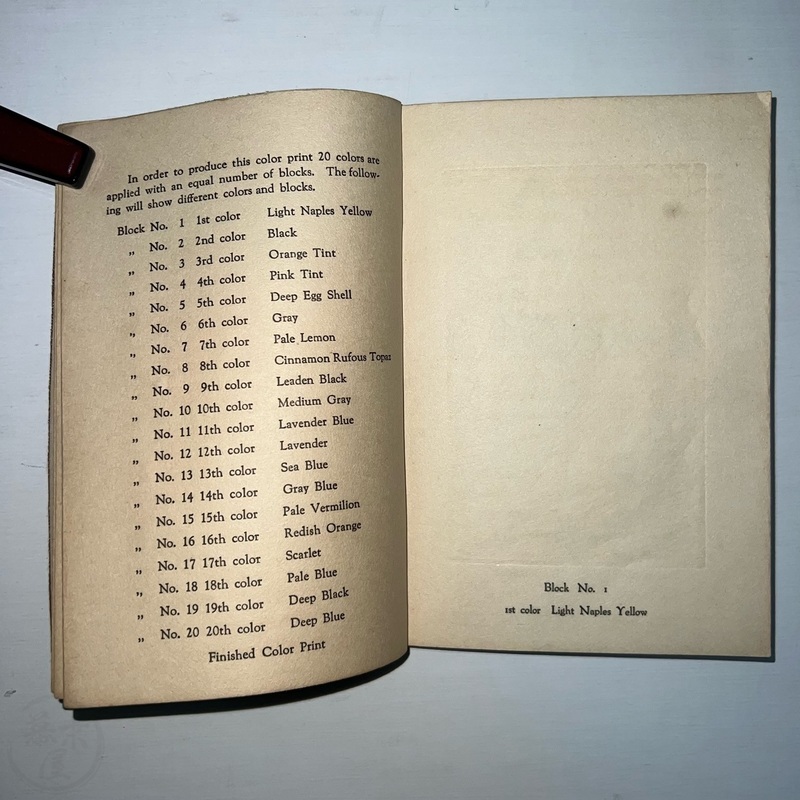 In order to produce this color print 20 colors are
applied with an equal number of blocks. The follow-
ing will show different colors and blocks.
Block No. 1 1st color Light Naples Yellow
„ No. 2 2nd color Black
„ No. 3 3rd color Orange Tint
„ No. 4 4th color Pink Tint
„ No. 5 5th color Deep Egg Shell
„ No. 6 6th color Gray
„ No. 7 7th color Pale Lemon
„ No. 8 8th color Cinnamon Rufous Topaz
„ No. 9 9th color Leaden Black
„ No. 10 10th color Medium Gray
„ No. 11 11th color Lavender Blue
„ No. 12 12th color Lavender
„ No. 13 13th color Sea Blue
„ No. 14 14th color Gray Blue
„ No. 15 15th color Pale Vermilion
„ No. 16 16th color Redish Orange
„ No. 17 17th color Scarlet
„ No. 18 18th color Pale Blue
„ No. 19 19th color Deep Black
„ No. 20 20th color Deep Blue
Finished Color Print
Block No. 1
1st color Light Naples Yellow